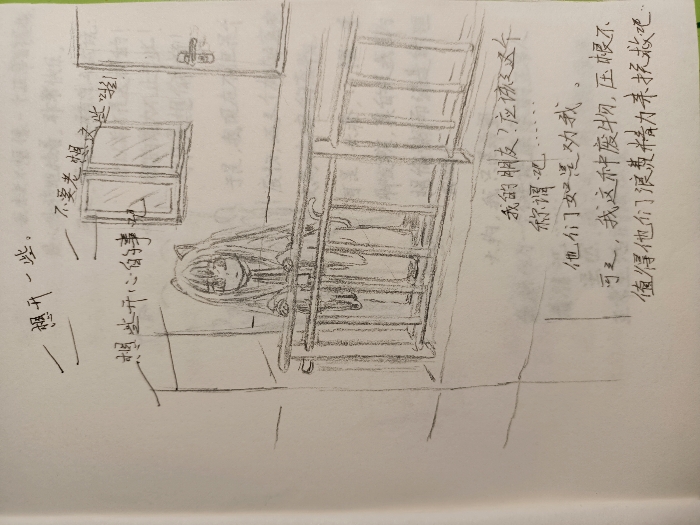 想开一些。
不要老想这些啦！
想些开心的事吧
我的朋友？应该是这个
称谓吧……
他们如是劝我。
可是，我这种废物，压根不
值得他们浪费精力来拯救吧。